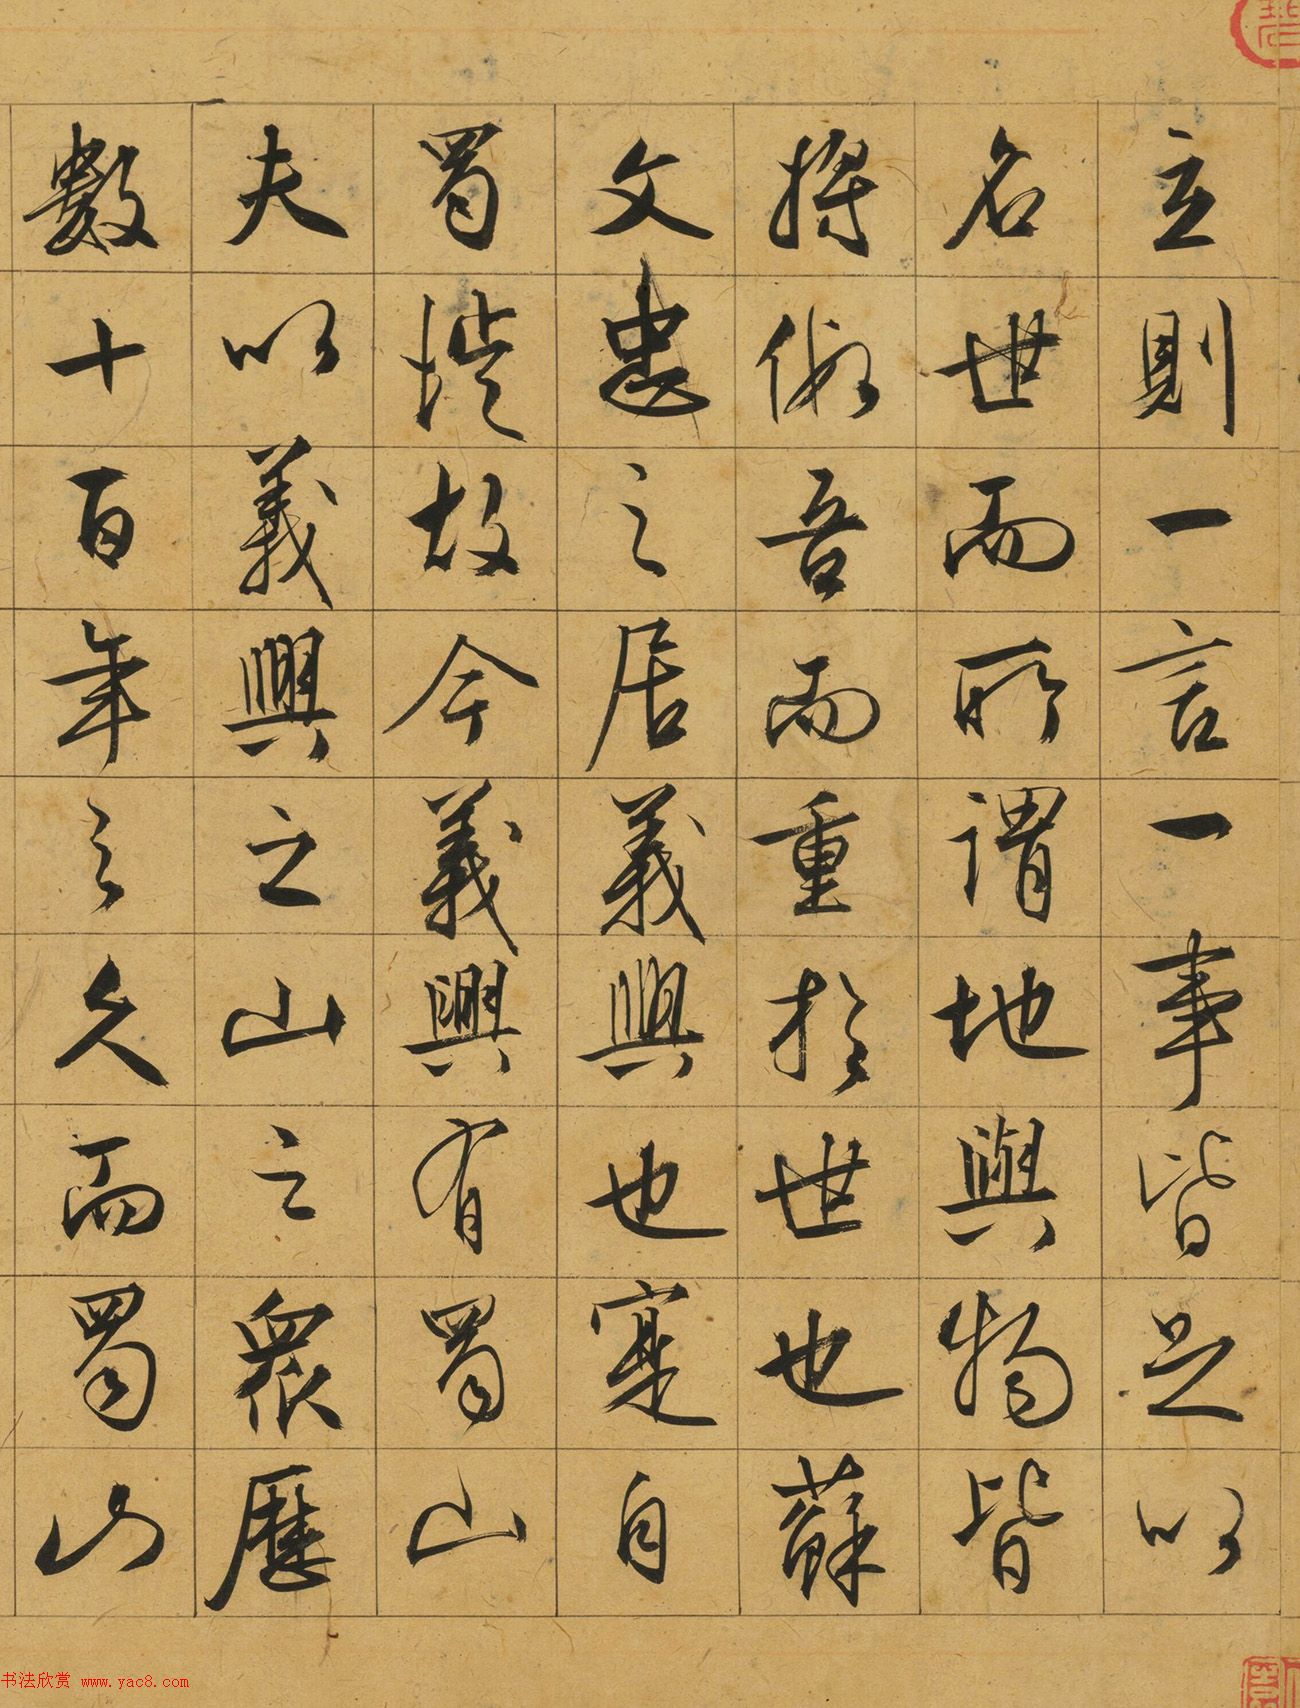 立則一言一事皆足以
名世而所謂地與物皆
将假吾而重於世也蘇
文忠之居義興也寔自
蜀徙故今義興有蜀山
夫以義興之山之衆歷
數十百年之久而蜀山
书法欣赏 www.yac8.com